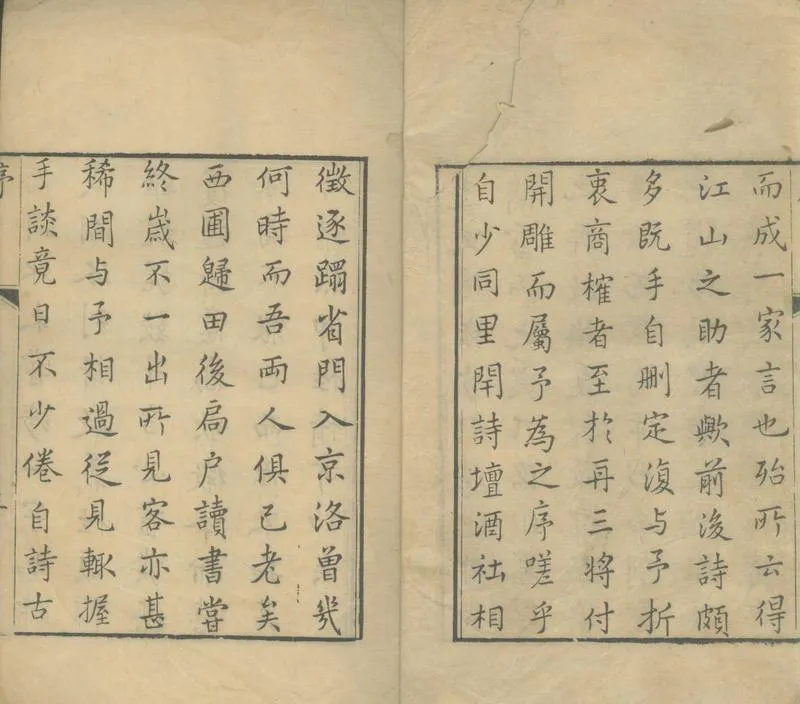 而成一家言也殆所云得
江山之助者歟前後詩頗
多既手自删定復与予折
衷商榷者至於再三將付
開雕而屬予為之序嗟乎
自少同里閈詩壇酒社相
徵逐躡省門入京洛曾幾
何時而吾兩人俱已老矣
西圃歸田後扃户讀書嘗
終嵗不一出所見客亦甚
稀間与予相過從見輙握
手談竟日不少倦自詩古
序